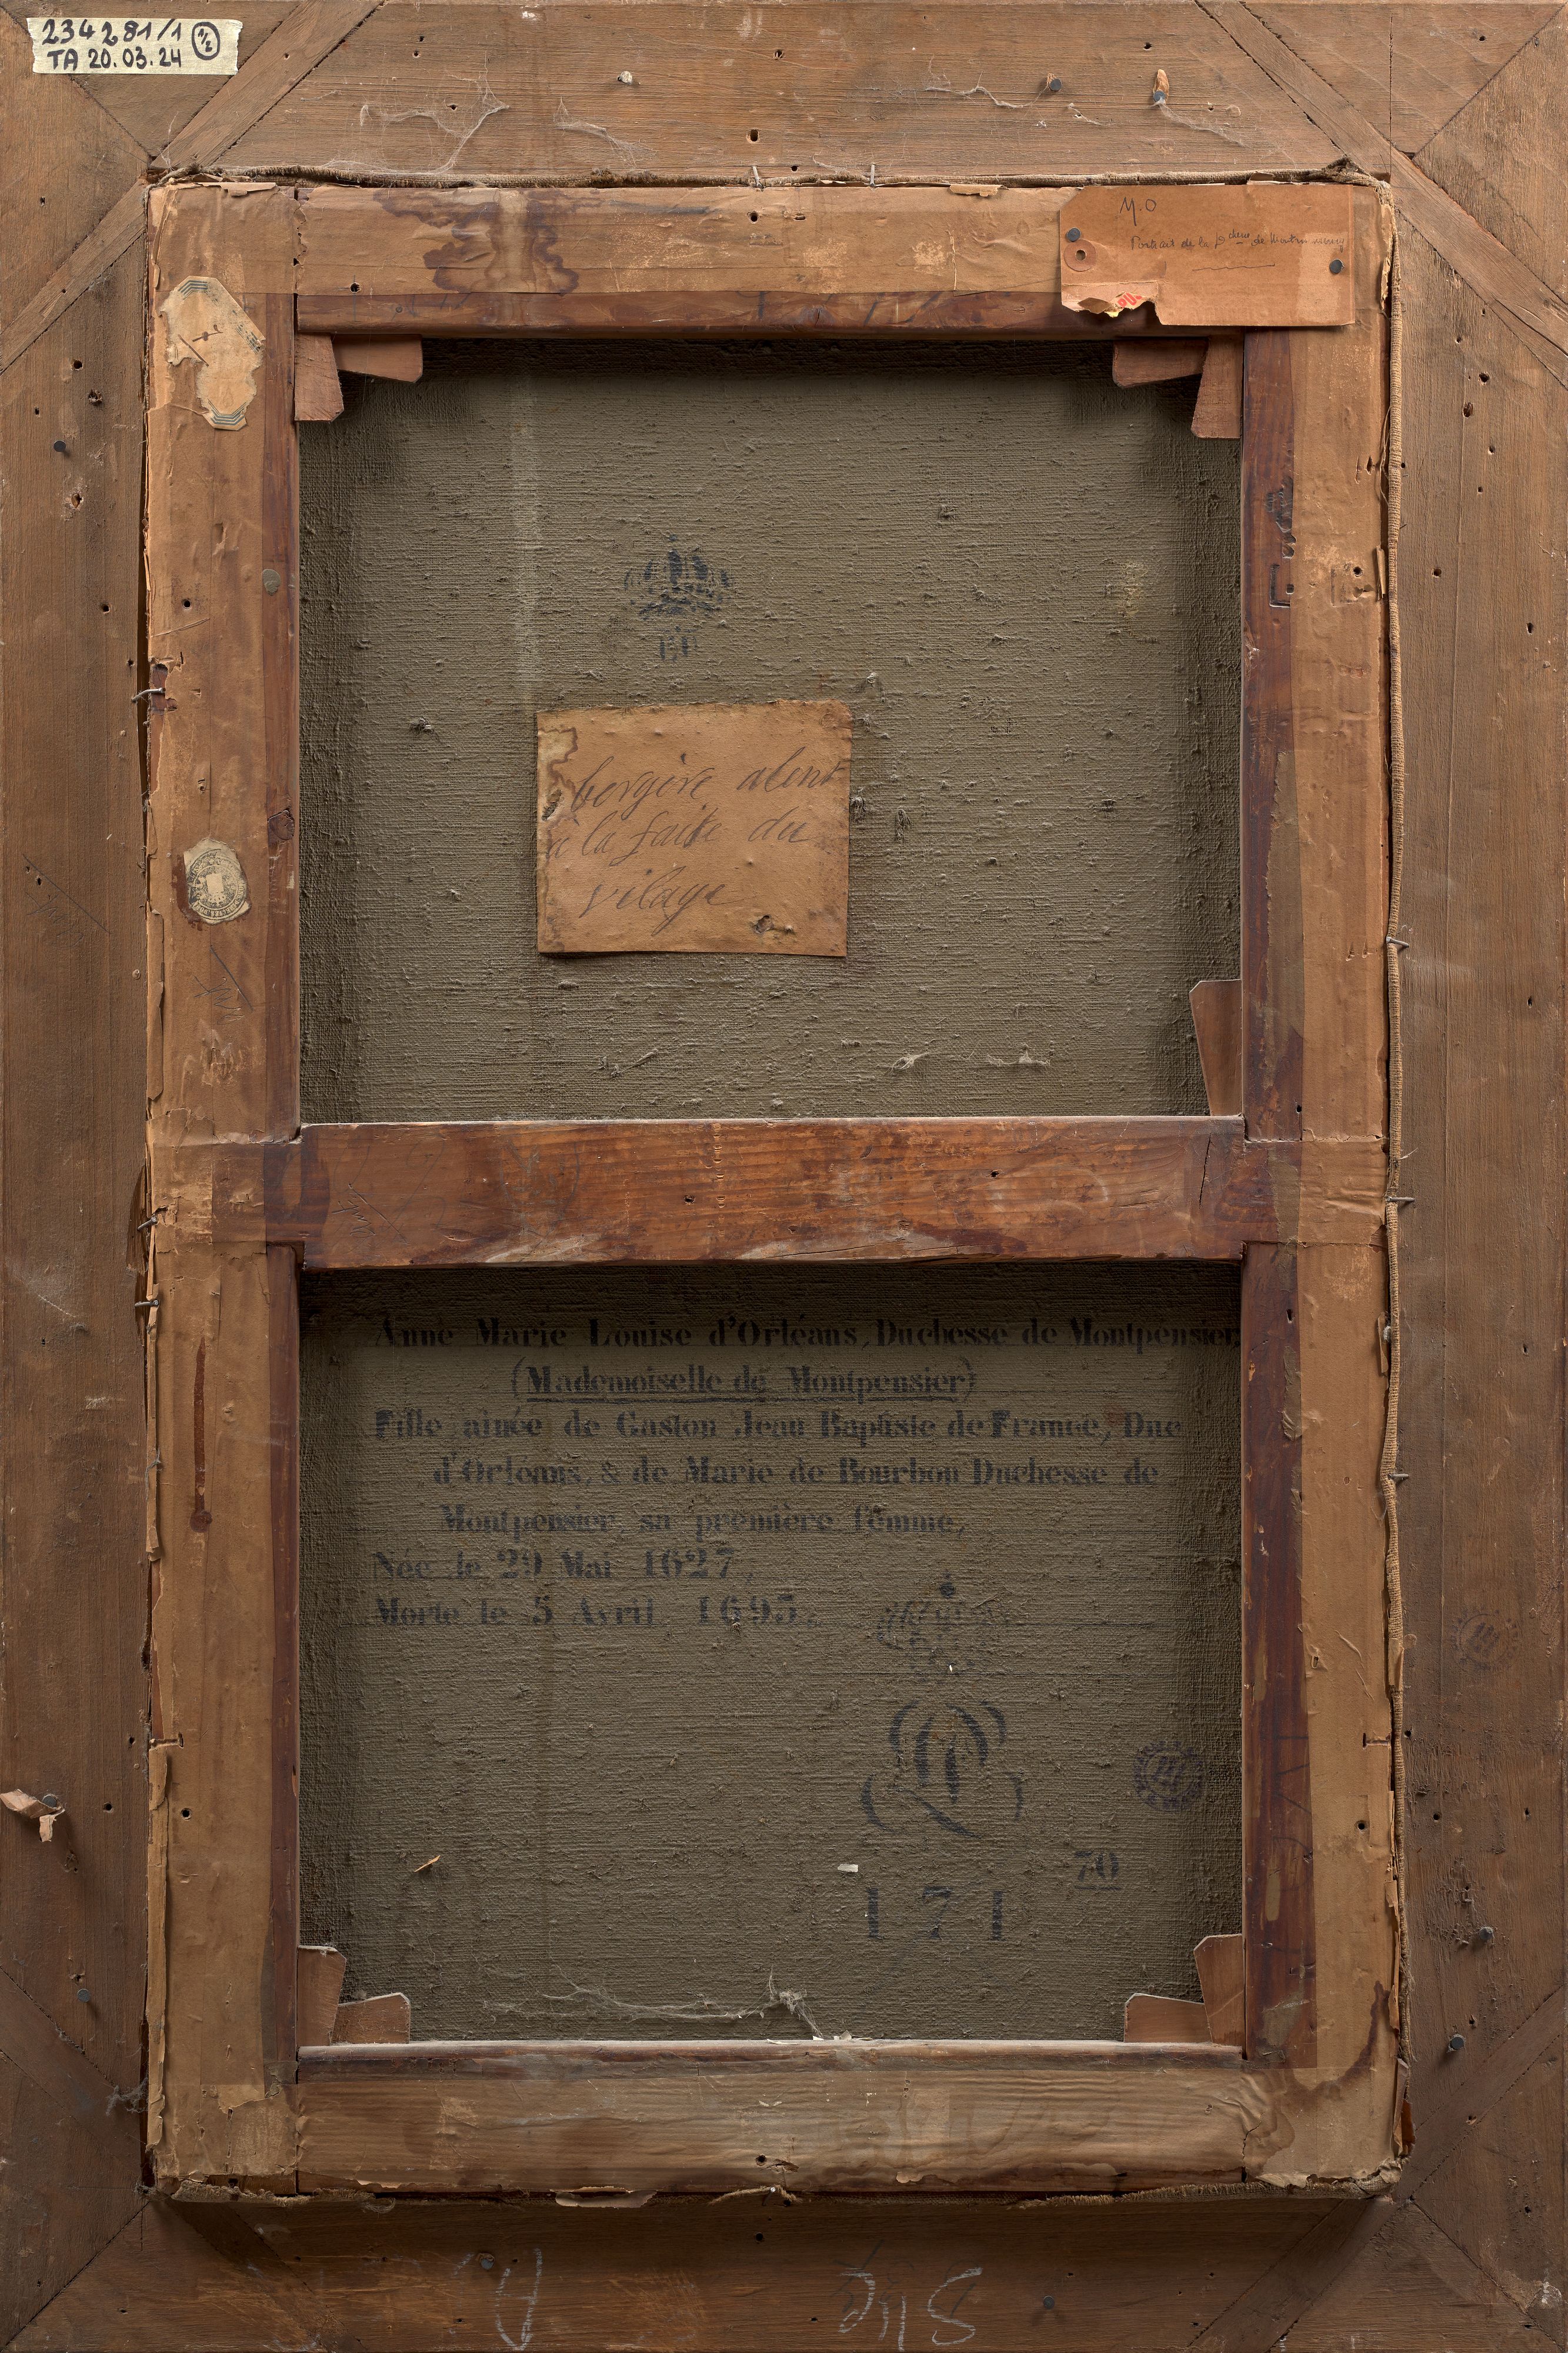 234281/1 1/2
TA 20.03.24
M.O
Portrait de la Dchesse de
bergère alent
a la faite du
vilage
Anne Marie Louise d'Orléans, Duchesse de Montpensier
(Mademoiselle de Montpensier)
Fille ainée de Gaston Jean Baptiste de France, Duc
d'Orléans, & de Marie de Bourbon Duchesse de
Montpensier, sa première femme,
Née le 29 Mai 1627,
Morte le 5 Avril 1695.
70
171